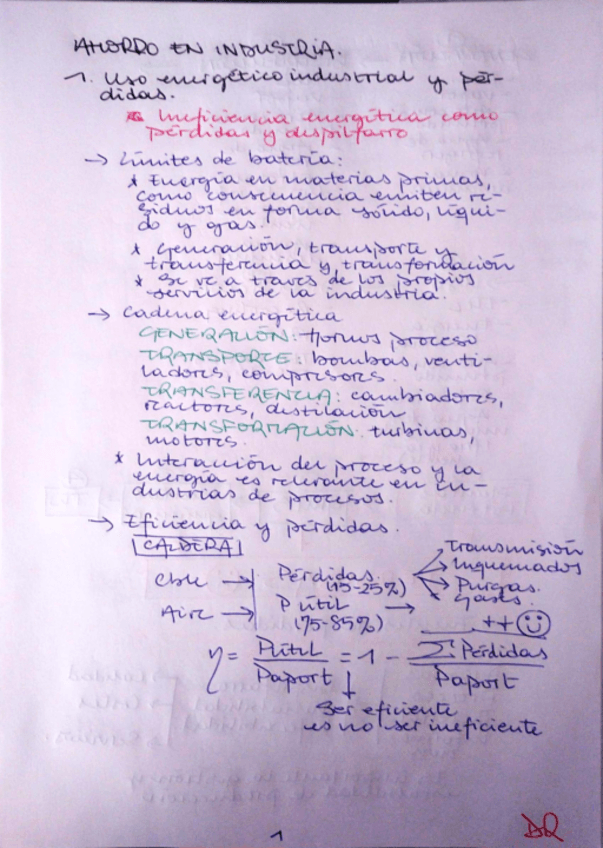 AHORRO EN INDUSTRIA.
1. Uso energético industrial y pér-
didas.
* Ineficiencia energética como
pérdidas y despilfarro
→ Límites de batería:
* Energía en materias primas,
como consecuencia emiten re-
siduos en forma sólido, líqui-
do y gas.
* Generación, transporte y
transferencia y transformación
* Se ve a través de los propios
servicios de la industria.
→ Cadena energética
GENERACIÓN: hornos proceso
TRANSPORTE: bombas, venti-
ladores, compresores.
TRANSFERENCIA: cambiadores,
reactores, destilación
TRANSFORMACIÓN: turbinas,
motores.
* Interacción del proceso y la
energía es relevante en in-
dustrias de procesos.
→ Eficiencia y pérdidas.
CALDERA
Cble → Pérdidas (15-25%) → Transmisión
Inquemados
Purgas
Gases
Aire → P útil (75-85%) → ++ ☺
η = Pútil / Paport = 1 - Σ Pérdidas / Paport
↓
Ser eficiente
es no ser ineficiente
1